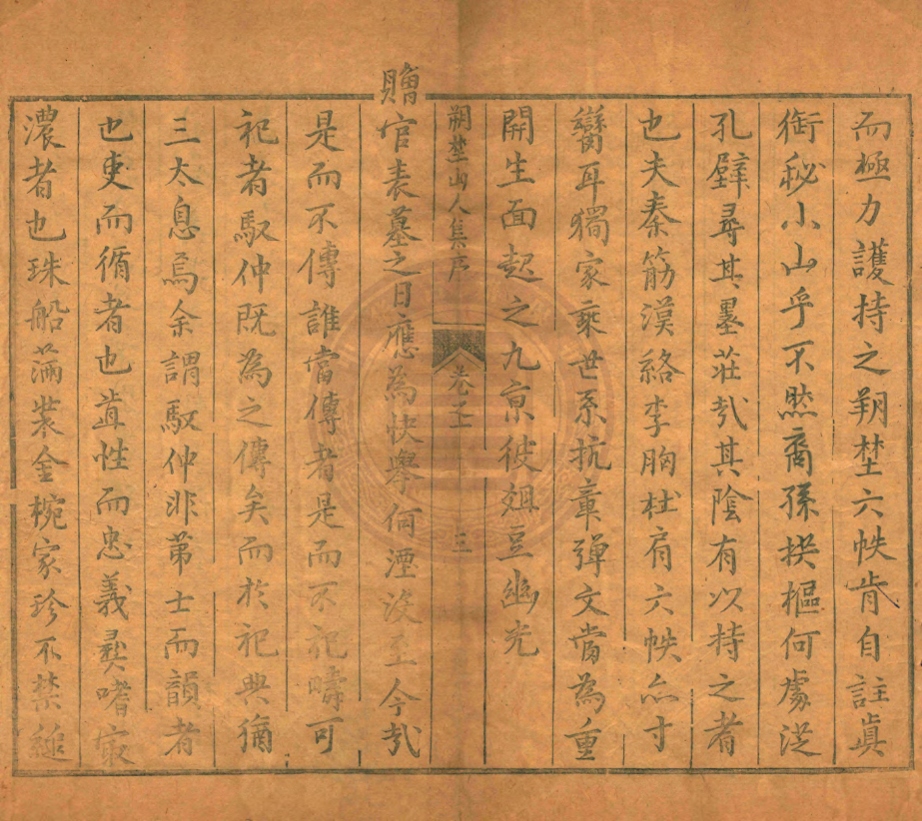 而極力護持之朔埜六帙肯自註真
銜秘小山乎不然裔孫拱樞何處從
孔壁尋其墨莊哉其陰有以持之者
也夫秦筋漢絡李胸杜肩六帙亦寸
臠耳獨家乘世系抗章彈文當為重
開生面起之九京彼俎豆幽光
朔埜山人集序 卷之 三
贈官表墓之日應為快舉何湮沒至今哉
是而不傳誰當傳者是而不祀疇可
祀者馭仲既為之傳矣而於祀典猶
三太息焉余謂馭仲非第士而韻者
也吏而循者也直性而忠義彜嗜寂
濃者也珠船滿裝金椀家珍不禁縋